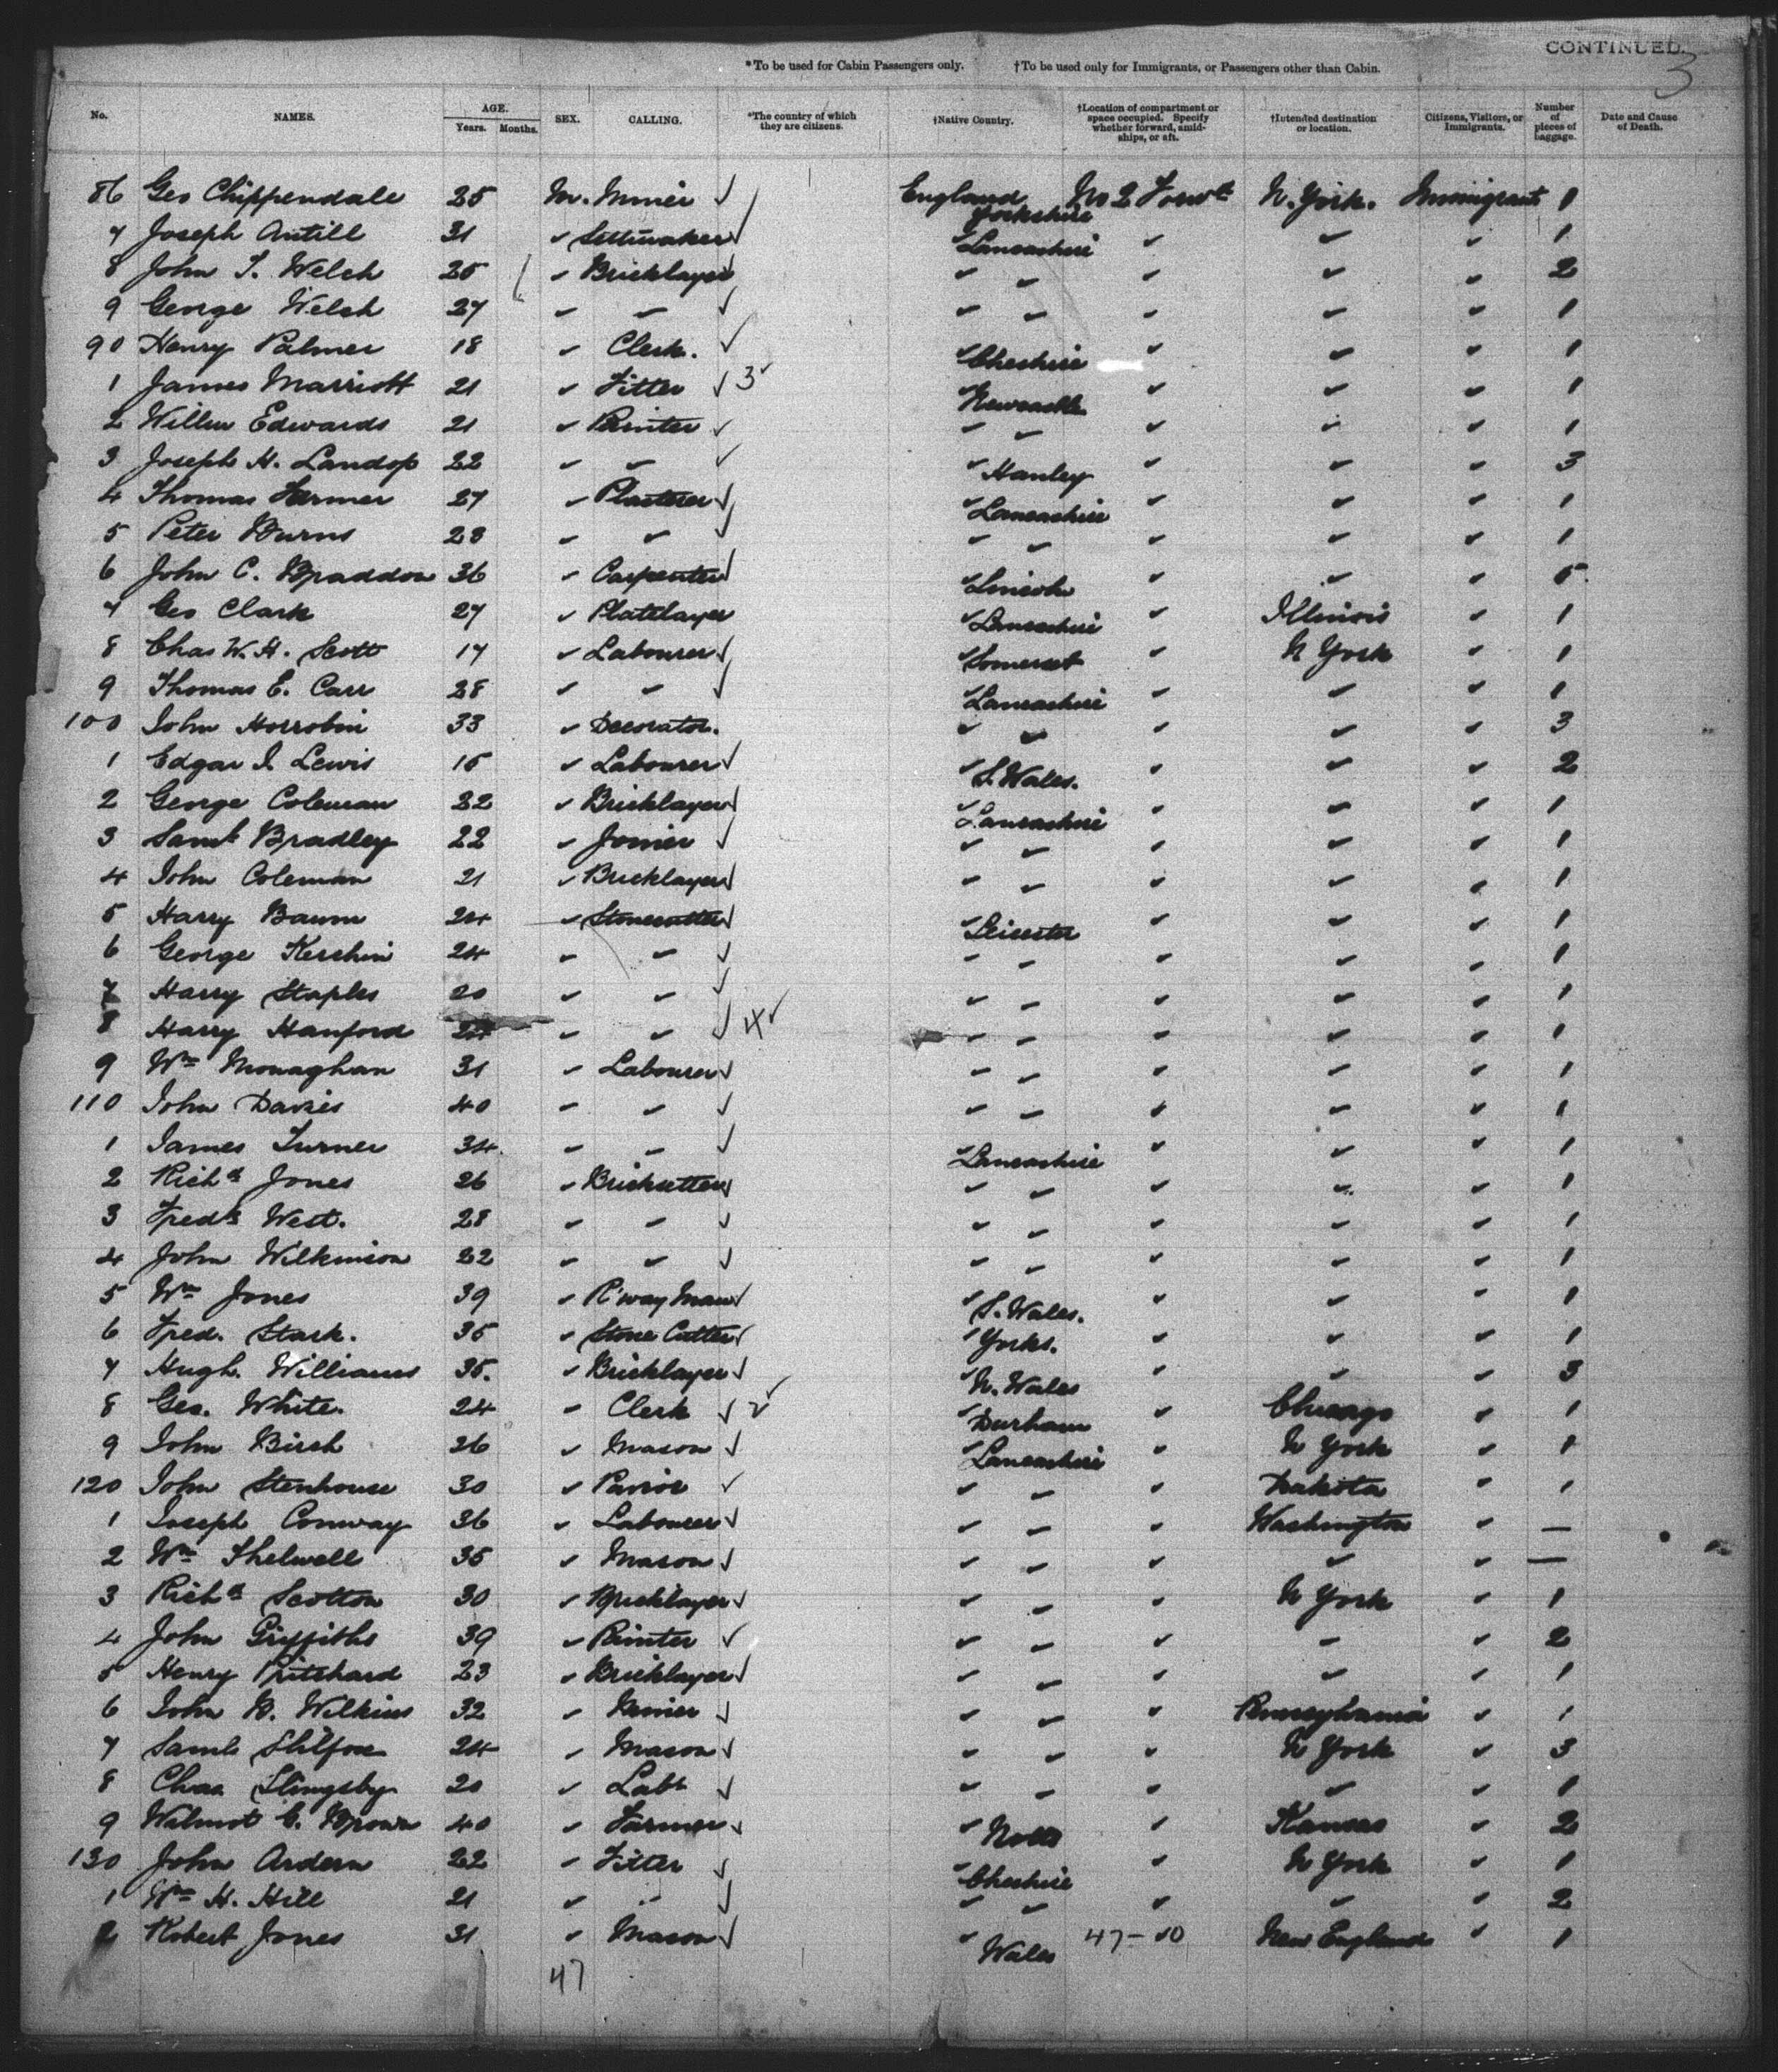 CONTINUED.
3
*To be used for Cabin Passengers only. †To be used only for Immigrants, or Passengers other than Cabin.
No. NAMES. AGE. Years. Months. SEX. CALLING. *The country of which they are citizens. †Native Country. †Location of compartment or space occupied. Specify whether forward, amidships, or aft. †Intended destination or location. Citizens, Visitors, or Immigrants. Number of pieces of baggage. Date and Cause of Death.
86 Geo Chippendale 25 M. Miner ✓ England Yorkshire No 2 Forwd N. York. Immigrant 1
7 Joseph Antill 31 ✓ ✓ Lancashire ✓ ✓ ✓ 1
8 John S. Welch 25 ✓ Bricklayer ✓ ✓ ✓ ✓ ✓ ✓ 2
9 George Welch 27 ✓ ✓ ✓ ✓ ✓ ✓ ✓ ✓ 1
90 Henry Palmer 18 ✓ Clerk. ✓ ✓ Cheshire ✓ ✓ ✓ 1
1 James Marriott 21 ✓ Fitter ✓ 3 ✓ ✓ Newcastle ✓ ✓ ✓ 1
2 Willm Edwards 21 ✓ Painter ✓ ✓ ✓ ✓ ✓ ✓ 1
3 Joseph H. 22 ✓ ✓ ✓ ✓ Hanley ✓ ✓ ✓ 3
4 Thomas 27 ✓ Plasterer ✓ ✓ Lancashire ✓ ✓ ✓ 1
5 Peter Burns 28 ✓ ✓ ✓ ✓ ✓ ✓ ✓ ✓ 1
6 John C. Braddon 36 ✓ Carpenter ✓ ✓ Lincoln ✓ ✓ ✓ 5
7 Geo Clark 27 ✓ Platelayer ✓ Lancashire ✓ Illinois ✓ 1
8 Chas W. H. Scott 17 ✓ Labourer ✓ ✓ Somerset ✓ N York ✓ 1
9 Thomas E. Carr 28 ✓ ✓ ✓ ✓ Lancashire ✓ ✓ ✓ 1
100 John Horrobin 33 ✓ Decorator. ✓ ✓ ✓ ✓ ✓ 3
1 Edgar J. Lewis 15 ✓ Labourer ✓ ✓ S. Wales. ✓ ✓ ✓ 2
2 George Coleman 22 ✓ Bricklayer ✓ ✓ Lancashire ✓ ✓ ✓ 1
3 Saml Bradley 22 ✓ Joiner ✓ ✓ ✓ ✓ ✓ ✓ 1
4 John Coleman 21 ✓ Bricklayer ✓ ✓ ✓ ✓ ✓ ✓ 1
5 Harry Baum 24 ✓ Stonecutter ✓ ✓ Leicester ✓ ✓ ✓ 1
6 George Kershin 24 ✓ ✓ ✓ ✓ ✓ ✓ ✓ ✓ 1
7 Harry Staples 20 ✓ ✓ ✓ ✓ ✓ ✓ ✓ ✓ 1
8 Harry Hanford 24 ✓ ✓ ✓ 4 ✓ ✓ ✓ ✓ ✓ ✓ 1
9 Wm Monaghan 31 ✓ Labourer ✓ ✓ ✓ ✓ ✓ ✓ 1
110 John Davies 40 ✓ ✓ ✓ ✓ ✓ ✓ ✓ ✓ 1
1 James Turner 34. ✓ ✓ ✓ ✓ Lancashire ✓ ✓ ✓ 1
2 Richd Jones 26 ✓ Bricksetter ✓ ✓ ✓ ✓ ✓ ✓ 1
3 Fredk West. 28 ✓ ✓ ✓ ✓ ✓ ✓ ✓ ✓ 1
4 John Wilkinson 22 ✓ ✓ ✓ ✓ ✓ ✓ ✓ ✓ 1
5 Wm Jones 39 ✓ R'way Man ✓ ✓ S. Wales. ✓ ✓ ✓ 1
6 Fred. Stark. 35 ✓ Stone Cutter ✓ ✓ Yorks. ✓ ✓ ✓ 1
7 Hugh. Williams 35. ✓ Bricklayer ✓ ✓ N. Wales ✓ ✓ ✓ 3
8 Geo. White. 24 ✓ Clerk ✓ 2 ✓ ✓ Durham ✓ Chicago ✓ 1
9 John Birch 26 ✓ Mason ✓ ✓ Lancashire ✓ N York ✓ 1
120 John Stenhouse 30 ✓ Pavior ✓ ✓ ✓ ✓ Dakota ✓ 1
1 Joseph Conway 36 ✓ Labourer ✓ ✓ ✓ ✓ Washington ✓ —
2 Wm Thelwell 35 ✓ Mason ✓ ✓ ✓ ✓ ✓ ✓ —
3 Richd Scotton 30 ✓ Bricklayer ✓ ✓ ✓ ✓ N York ✓ 1
4 John Griffiths 39 ✓ Painter ✓ ✓ ✓ ✓ ✓ ✓ 2
5 Henry Pritchard 23 ✓ Bricklayer ✓ ✓ ✓ ✓ ✓ ✓ 1
6 John B. Wilkins 32 ✓ Miner ✓ ✓ ✓ ✓ Pennsylvania ✓ 1
7 Saml 24 ✓ Mason ✓ ✓ ✓ ✓ N York ✓ 3
8 Chas Slingsby 20 ✓ Labr ✓ ✓ ✓ ✓ ✓ ✓ 1
9 Walmot C. Brown 40 ✓ Farmer ✓ ✓ Notts ✓ Kansas ✓ 2
130 John Ardern 22 ✓ Fitter ✓ ✓ Cheshire ✓ N York ✓ 1
1 Wm H. Hill 21 ✓ ✓ ✓ ✓ ✓ ✓ ✓ ✓ 2
2 Robert Jones 31 ✓ Mason ✓ ✓ Wales 47-10 New England ✓ 1
47